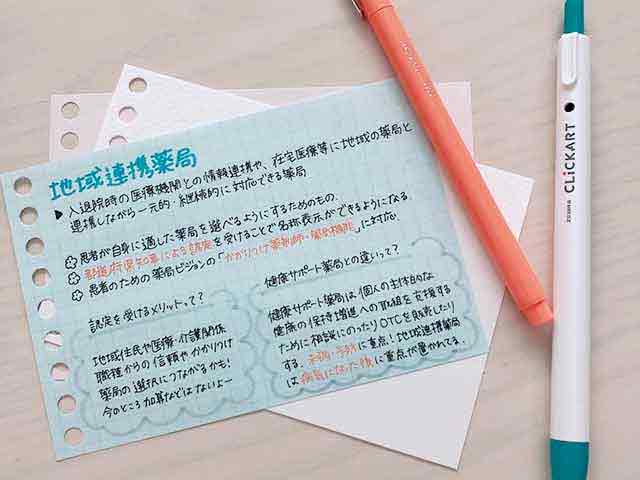 地域連携薬局
▶ 入退院時の医療機関との情報連携や、在宅医療等に地域の薬局と
連携しながら一元的・継続的に対応できる薬局
患者が自身に適した薬局を選べるようにするためのもの。
都道府県知事による認定を受けることで名称表示ができるようになる
患者のための薬局ビジョンの「かかりつけ薬剤師・薬局機能」に対応。
認定を受けるメリットって?
地域住民や医療・介護関係
職種からの信頼やかかりつけ
薬局の選択につながるかも!
今のところ加算などはないよー
健康サポート薬局との違いって?
健康サポート薬局は個人の主体的な
健康の保持増進への取組を支援する
ために相談にのったりOTCを販売したり
する。未病・予防に重点!地域連携薬局
は病気になった後に重点が置かれてる。
ZEBRA CLiCKART